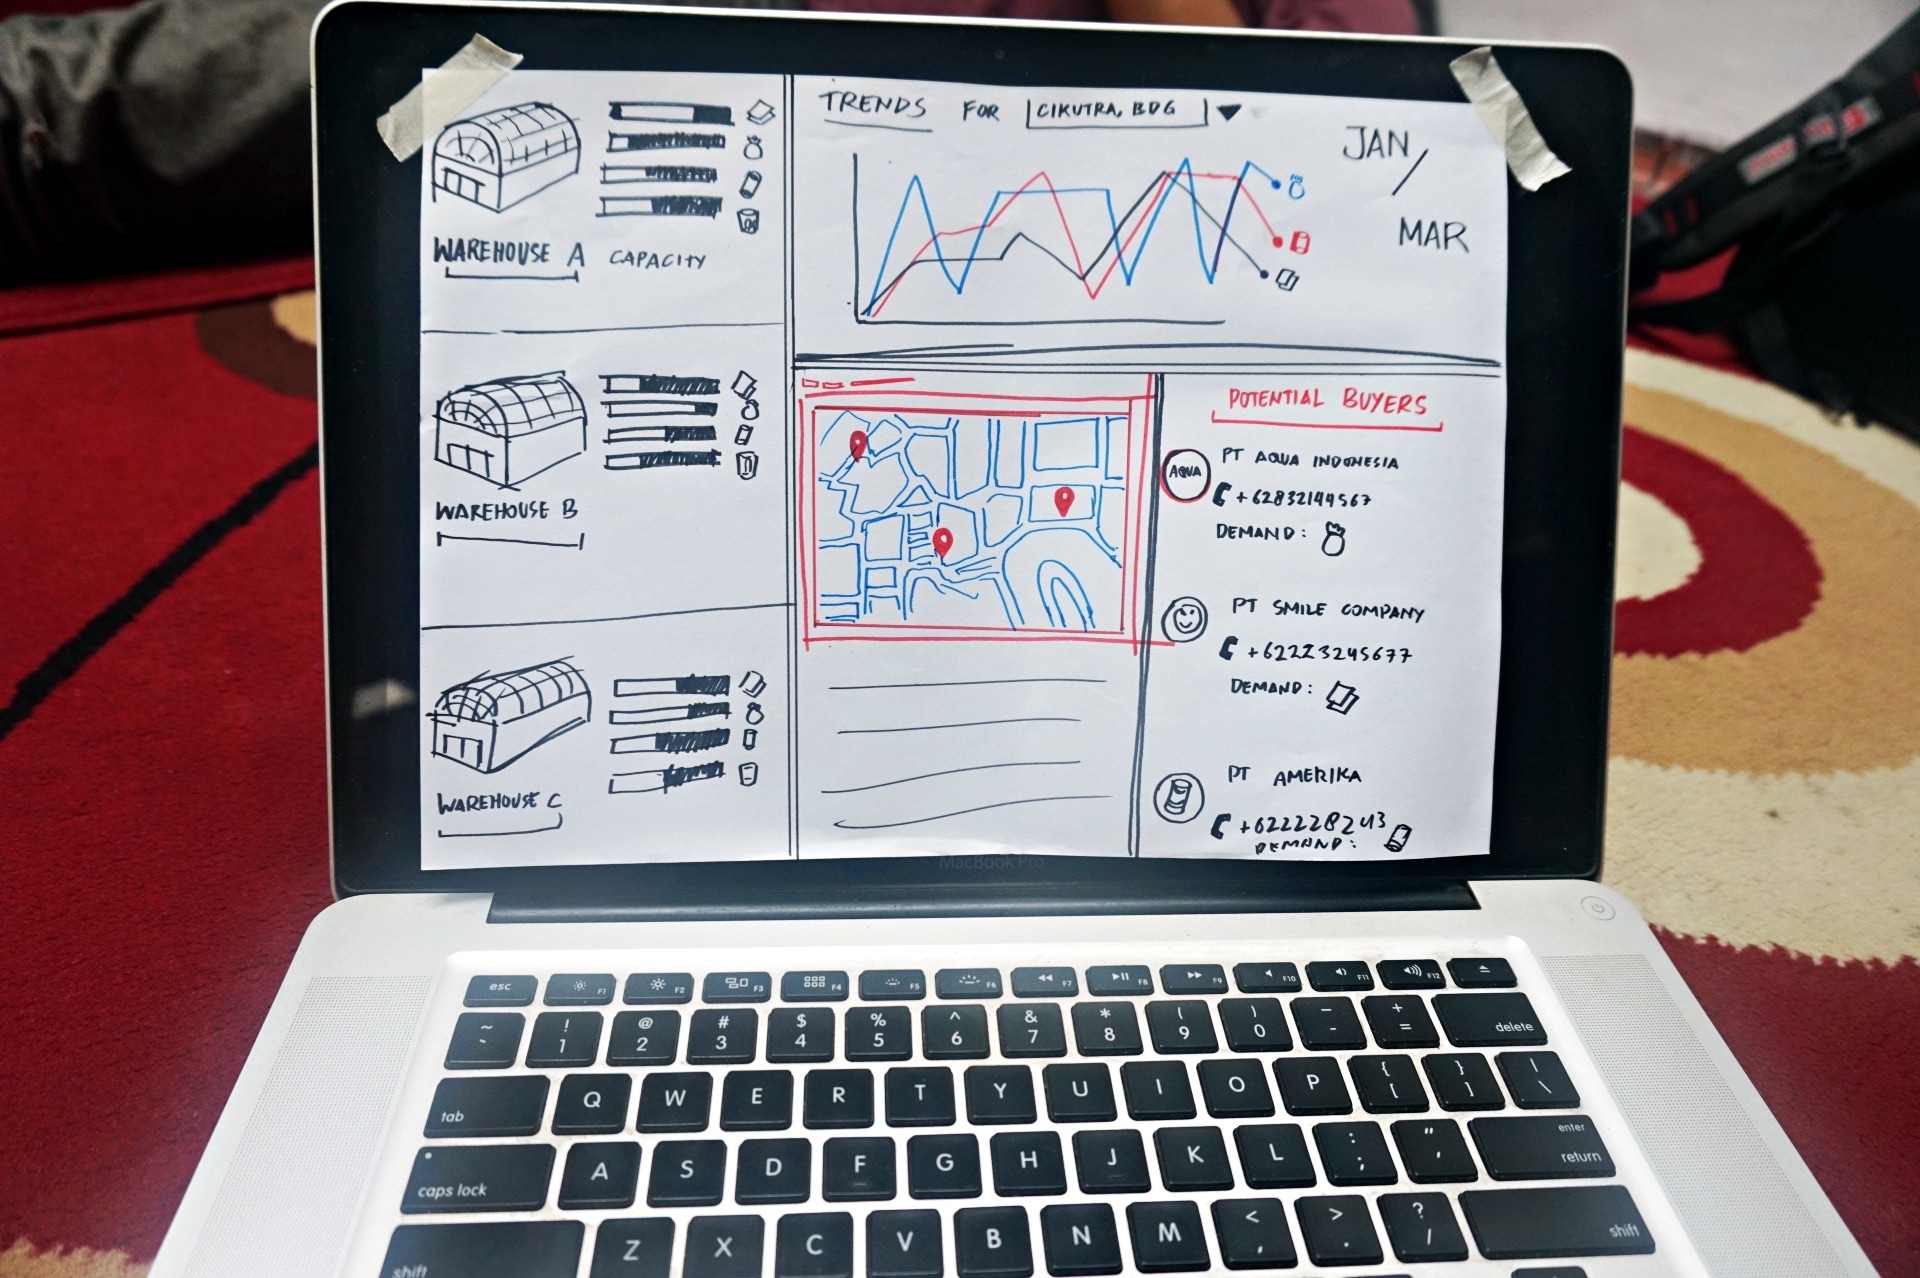 WAREHOUSE A CAPACITY
WAREHOUSE B
WAREHOUSE C
TRENDS FOR CIKUTRA, BDG
JAN/
MAR
POTENTIAL BUYERS
AQUA
PT AQUA INDONESIA
+62832144567
DEMAND:
PT SMILE COMPANY
+62223245677
DEMAND:
PT AMERIKA
+622228243
DEMAND:
MacBook Pro
esc F1 F2 F3 F4 F5 F6 F7 F8 F9 F10 F11 F12
~ ! @ # $ % ^ & * ( ) _ +
` 1 2 3 4 5 6 7 8 9 0 - = delete
tab Q W E R T Y U I O P { [ } ] | \
caps lock A S D F G H J K L : ; " ' enter return
shift Z X C V B N M < , > . ? / shift